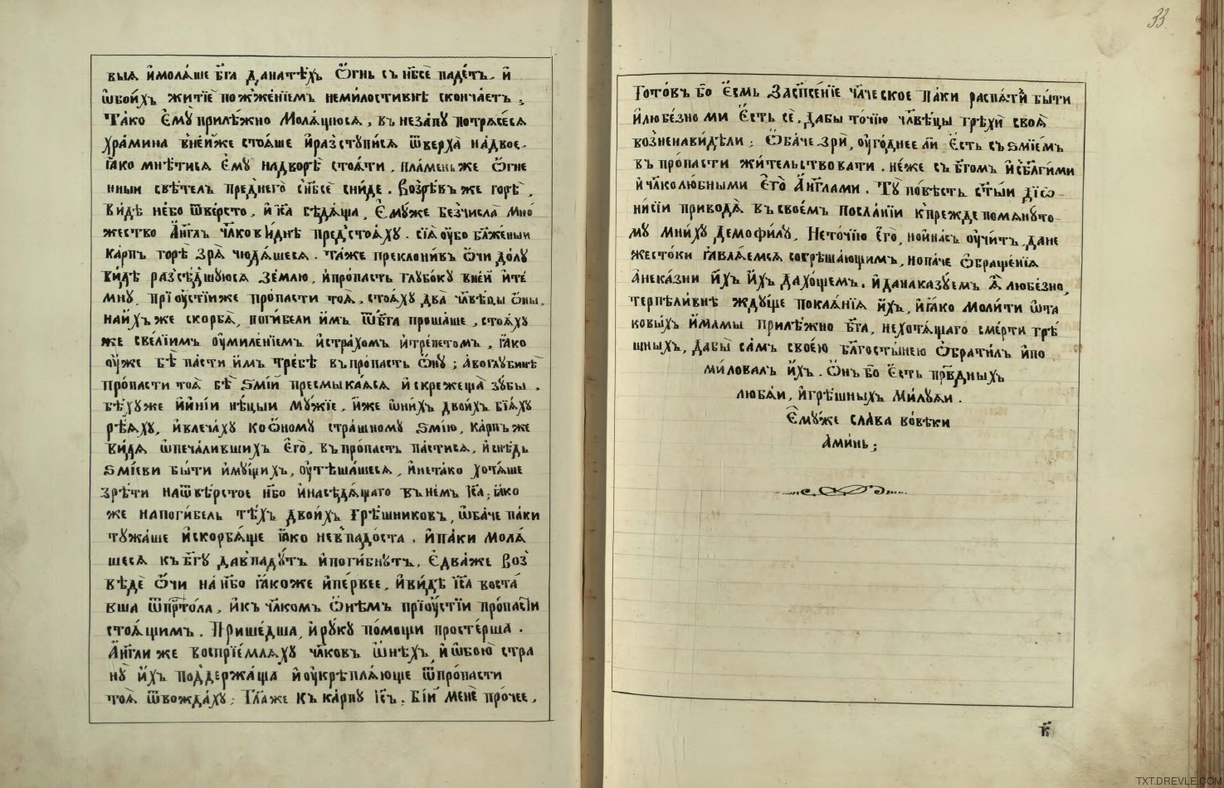 выѧ и҆молѧ́ше бг҃а да́натѣ́хъ Ѻ҆́гнь съ нб҃сѐ паде́тъ. и҆
ѡ҆бои́хъ житїѐ пожже́нїемъ немилостивнѣ̀ сконча́етъ ;
Та́ко є҆мꙋ̀ прилѣ́жно молѧ́щꙋсѧ, въ неза́пꙋ потрѧсе́сѧ
хра́мина вне́йже стоѧ́ше и҆разстꙋпи́сѧ ѿве́рха̀ на́двое.
ꙗ҆́ко мнѣ́тисѧ є҆мꙋ̀ надворѣ̀ стоѧ́ти, пла́мень же Ѻ҆́гне
нныи свѣ́телъ пре́днего̀ снб҃сѐ сни́де. Возрѣ́въ же горѣ̀,
ви́дѣ не́бо ѿве́рсто, и҆ І҆и҃са сѣдѧ́ща, є҆мꙋ́же безчи́сла мно́
жество А҆́нг҃лъ чл҃кови́днѣ пред̾стоѧ́хꙋ. сїѧ̀ ѹ҆́бо бл҃же́нныи
ка́рпъ горѣ̀ зрѧ̀ чюдѧ́шесѧ. та́же преклони́въ Ѻ҆́чи до́лꙋ
ви́дѣ разсѣ́дшꙋюсѧ зе́млю, и҆про́пасть глꙋбокꙋ̀ вне́й и҆те́
мнꙋ, прїꙋ҆́стїи же про́пасти тоѧ̀, стоѧ́хꙋ два̀ чл҃вѣцы Ѻ҆́ны,
наи҆́хъ же скорбѧ̀, поги́бели и҆́мъ ѿбг҃а проша́ше, стоѧ́хꙋ
же све́лїимъ ѹ҆миле́нїемъ и҆стра́хомъ и҆тре́петомъ, ꙗ҆́ко
ѹ҆же бѣ̀ па́сти и҆́мъ тре́бѣ въпро́пасть Ѻ҆́нꙋ ; а҆воглꙋбинѣ̀
про́пасти тоѧ̀ бѣ̀ ѕмі́й пресмыка́ѧсѧ и҆ скре́жеща зꙋ́бы.
бѣ́хꙋже и҆и҆ні́и нѣ́цыи мꙋ́жїе, и҆́же ѡ҆ни́хъ двои́хъ бїѧ́хꙋ
рѣ́ѧхꙋ, и҆влеча́хꙋ коѻ҆номꙋ стра́шномꙋ ѕмі́ю, ка́рпъ же
ви́дѧ ѡ҆печа́лившихъ є҆го̀, въпро́пасть па́стисѧ, и҆снѣ́дь
ѕмі́еви бы́ти и҆мꙋ́щихъ, ѹ҆тѣша́шесѧ, и҆нета́ко хотѧ́ше
зрѣ́ти наѿвѣ́рстое нб҃о и҆насѣдѧ́щаго въ не́мъ І҆и҃са; ꙗ҆́ко
же напоги́бель тѣ́хъ двои́хъ грѣ́шниковъ, ѡ҆ба́че па́ки
тꙋжа́ше и҆скорбѧ́ше ꙗ҆́ко нев̾падо́ста. и҆па́ки молѧ́
шесѧ къ бг҃ꙋ да́в̾падꙋ́тъ и҆поги́бнꙋтъ. є҆два́же воз̾
ве́дѐ Ѻ҆́чи на нб҃о ꙗ҆́коже и҆пе́рвее, и҆ви́дѣ І҆и҃са воста́
вша ѿпр҃то́ла, и҆къ чл҃комъ Ѻ҆́нѣмъ прїꙋ҆́стїи про́пасти
стоѧ́щимъ. Прише́дша, и҆рꙋ́кꙋ по́мощи просте́рша.
А҆́нг҃ли же воспрїе́млѧхꙋ чл҃ковъ ѡ҆нѣ́хъ, и҆ѡ҆бою̀ стра
нꙋ̀ и҆́хъ поддержа́ща и҆ѹ҆крѣплѧ́юще ѿпро́пасти
тоѧ̀ ѿвожда́хꙋ; Гл҃а же къ ка́рпꙋ І҆и҃съ; Бі́й менѐ про́чее,
33
Гото́въ бо є҆́смь за́сп҃се́нїе чл҃ческое па́ки распѧ́тъ бы́ти
и҆любе́зно ми є҆́сть сѐ, да́бы то́чїю чл҃вѣ́цы грѣхѝ своѧ̀
возненави́дѣли ; Ѻ҆ба́че зрѝ, ѹ҆го́днее ли є҆́сть съ ѕмі́емъ
въ про́пасти жи́тельствовати. не́же съ бг҃омъ и҆сбл҃ги́ми
и҆чл҃колюбными є҆гѡ̀ А҆́нг҃лами. Тꙋ̀ по́вѣсть ст҃ы́и дїѡ-
ни́сїи приводѧ̀ въ свое́мъ посла́нїи к̾пре́жде помѧ́нꙋто
мꙋ мни́хꙋ демофи́лꙋ, Нето́чїю є҆го̀, но́и҆на́съ ѹ҆чи́тъ, да́не
же́стоки ꙗ҆влѧ́емсѧ согрѣша́ющимъ, нопа́че Ѻ҆браще́нїѧ
а҆неказни и҆́хъ и҆́хъ да́хощемъ. и҆данаказꙋ́емъ ѧ҆̀ любе́зно,
терпѣли́внѣ ждꙋ́ще покаѧ́нїѧ и҆́хъ, и҆ꙗ҆́ко моли́ти ѡ҆та
ковы́хъ и҆́мамы прилѣ́жно бг҃а, нехотѧ́щаго сме́рти грѣ́
шныхъ, да́бы са́мъ своею̀ бл҃госты́нею Ѻ҆брати́лъ и҆по
ми́ловалъ и҆́хъ. Ѻ҆́нъ бо є҆́сть прв҃дныхъ
любѧ́и, и҆грѣ́шныхъ ми́лꙋѧи.
є҆мꙋ́же сла́ва вовѣ́ки
а҆ми́нь ;
TXT.DREVLE.COM